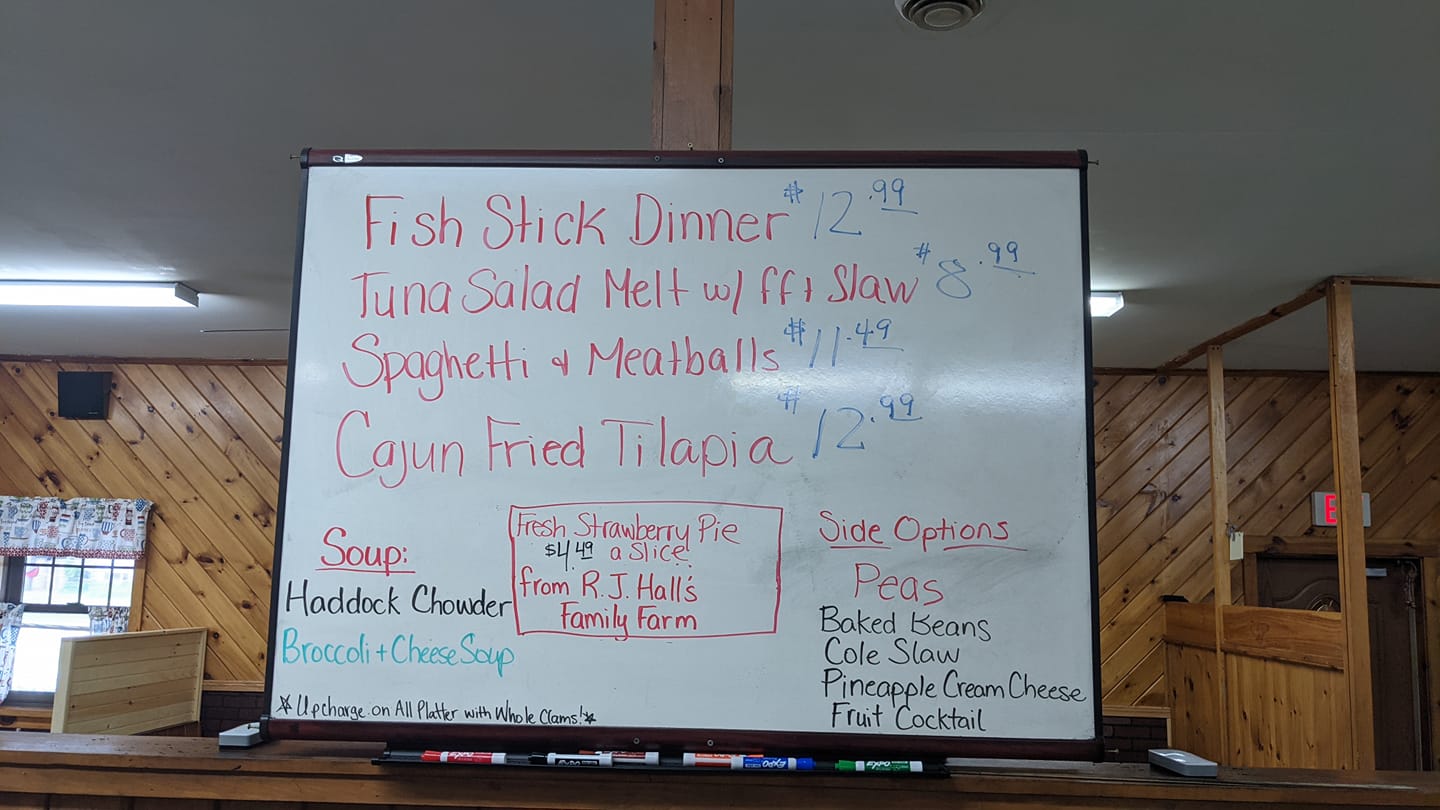 Fish Stick Dinner $12.99
Tuna Salad Melt w/ ff + Slaw $8.99
Spaghetti & Meatballs $11.49
Cajun Fried Tilapia $12.99
Soup:
Haddock Chowder
Broccoli + Cheese Soup
Fresh Strawberry Pie
$4.49 a slice!
from R.J. Hall's
Family Farm
Side Options
Peas
Baked Beans
Cole Slaw
Pineapple Cream Cheese
Fruit Cocktail
*Upcharge on All Platter with Whole Clams!*
E
EXPO
EXPO
EXPO
EXPO